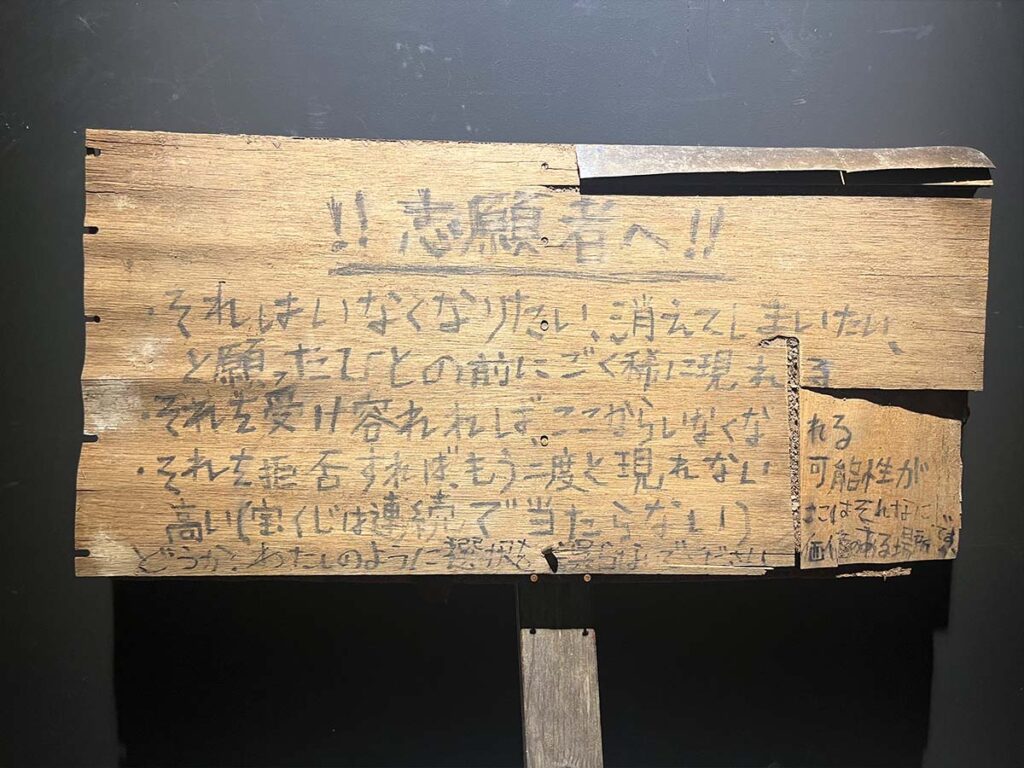 !!志願者へ!!
・それはいなくなりたい、消えてしまいたい、
と願ったひとの前にごく稀に現れる
・それを受け容れれば、ここからいなくなれる
・それを拒否すれば、もう二度と現れない可能性が
高い(宝くじは連続で当たらない)
どうか、わたしのように ないでください
ここは
価値のある場所です